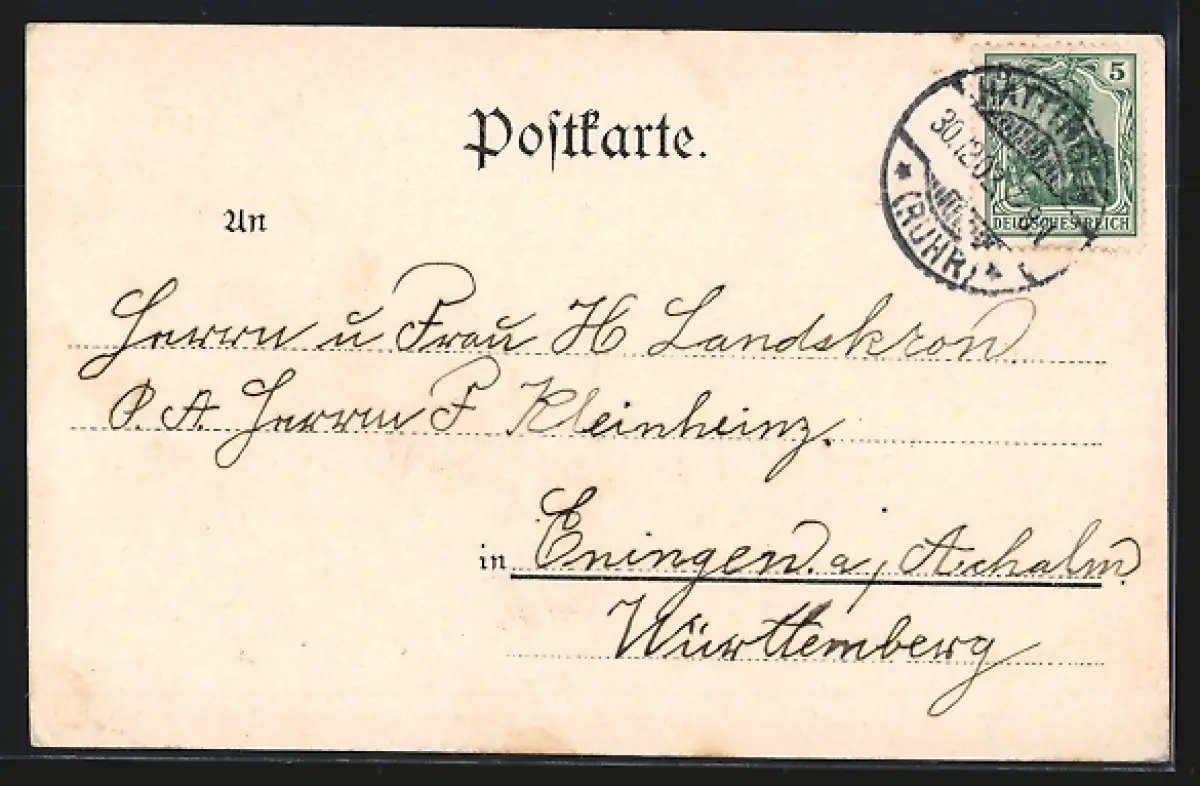 Postkarte.
5
HATTINGEN
30.12.02
(RUHR)
DEUTSCHES REICH
An
Herrn u Frau H Landskron
P. A. Herrn F Kleinheinz.
in Eningen a, Achalm
Württemberg